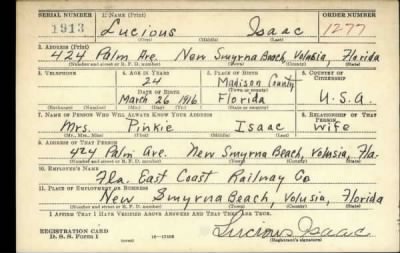 SERIAL NUMBER 1. NAME (Print) ORDER NUMBER
1913 Lucious Isaac 1277
(First) (Middle) (Last)
2. ADDRESS (Print)
424 Palm Ave. New Smyrna Beach, Volusia, Florida
(Number and street or R. F. D. number) (Town) (County) (State)
3. TELEPHONE 4. AGE IN YEARS 5. PLACE OF BIRTH 6. COUNTRY OF CITIZENSHIP
24 Madison County
DATE OF BIRTH (Town or county)
March 26 1916 Florida U.S.A.
(Exchange) (Number) (Mo.) (Day) (Yr.) (State or country)
7. NAME OF PERSON WHO WILL ALWAYS KNOW YOUR ADDRESS 8. RELATIONSHIP OF THAT PERSON
Mrs. Pinkie Isaac wife
(Mr., Mrs., Miss) (First) (Middle) (Last)
9. ADDRESS OF THAT PERSON
424 Palm Ave. New Smyrna Beach, Volusia, Fla.
(Number and street or R. F. D. number) (Town) (County) (State)
10. EMPLOYER'S NAME
Fla. East Coast Railway Co
11. PLACE OF EMPLOYMENT OR BUSINESS
New Smyrna Beach, Volusia, Florida
(Number and street or R. F. D. number) (Town) (County) (State)
I AFFIRM THAT I HAVE VERIFIED ABOVE ANSWERS AND THAT THEY ARE TRUE.
REGISTRATION CARD
D. S. S. Form 1 Lucious Isaac
(over) (Registrant's signature)